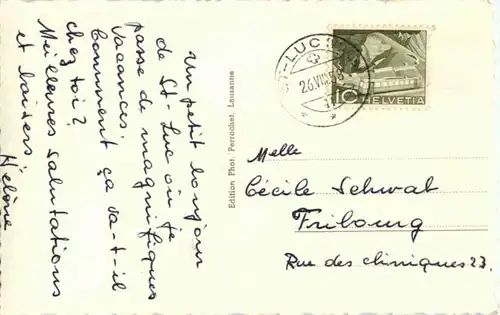 Un petit bonjour
de St-Luc où je
passe de magnifiques
vacances.
Comment ça va-t-il
chez toi?
Meilleures salutations
et baisers
Hélène
Edition Phot. Perrochet, Lausanne
ST-LUC
26.VII.53
10 HELVETIA
Melle
Cécile Schwab
Fribourg
Rue des cliniques 23.